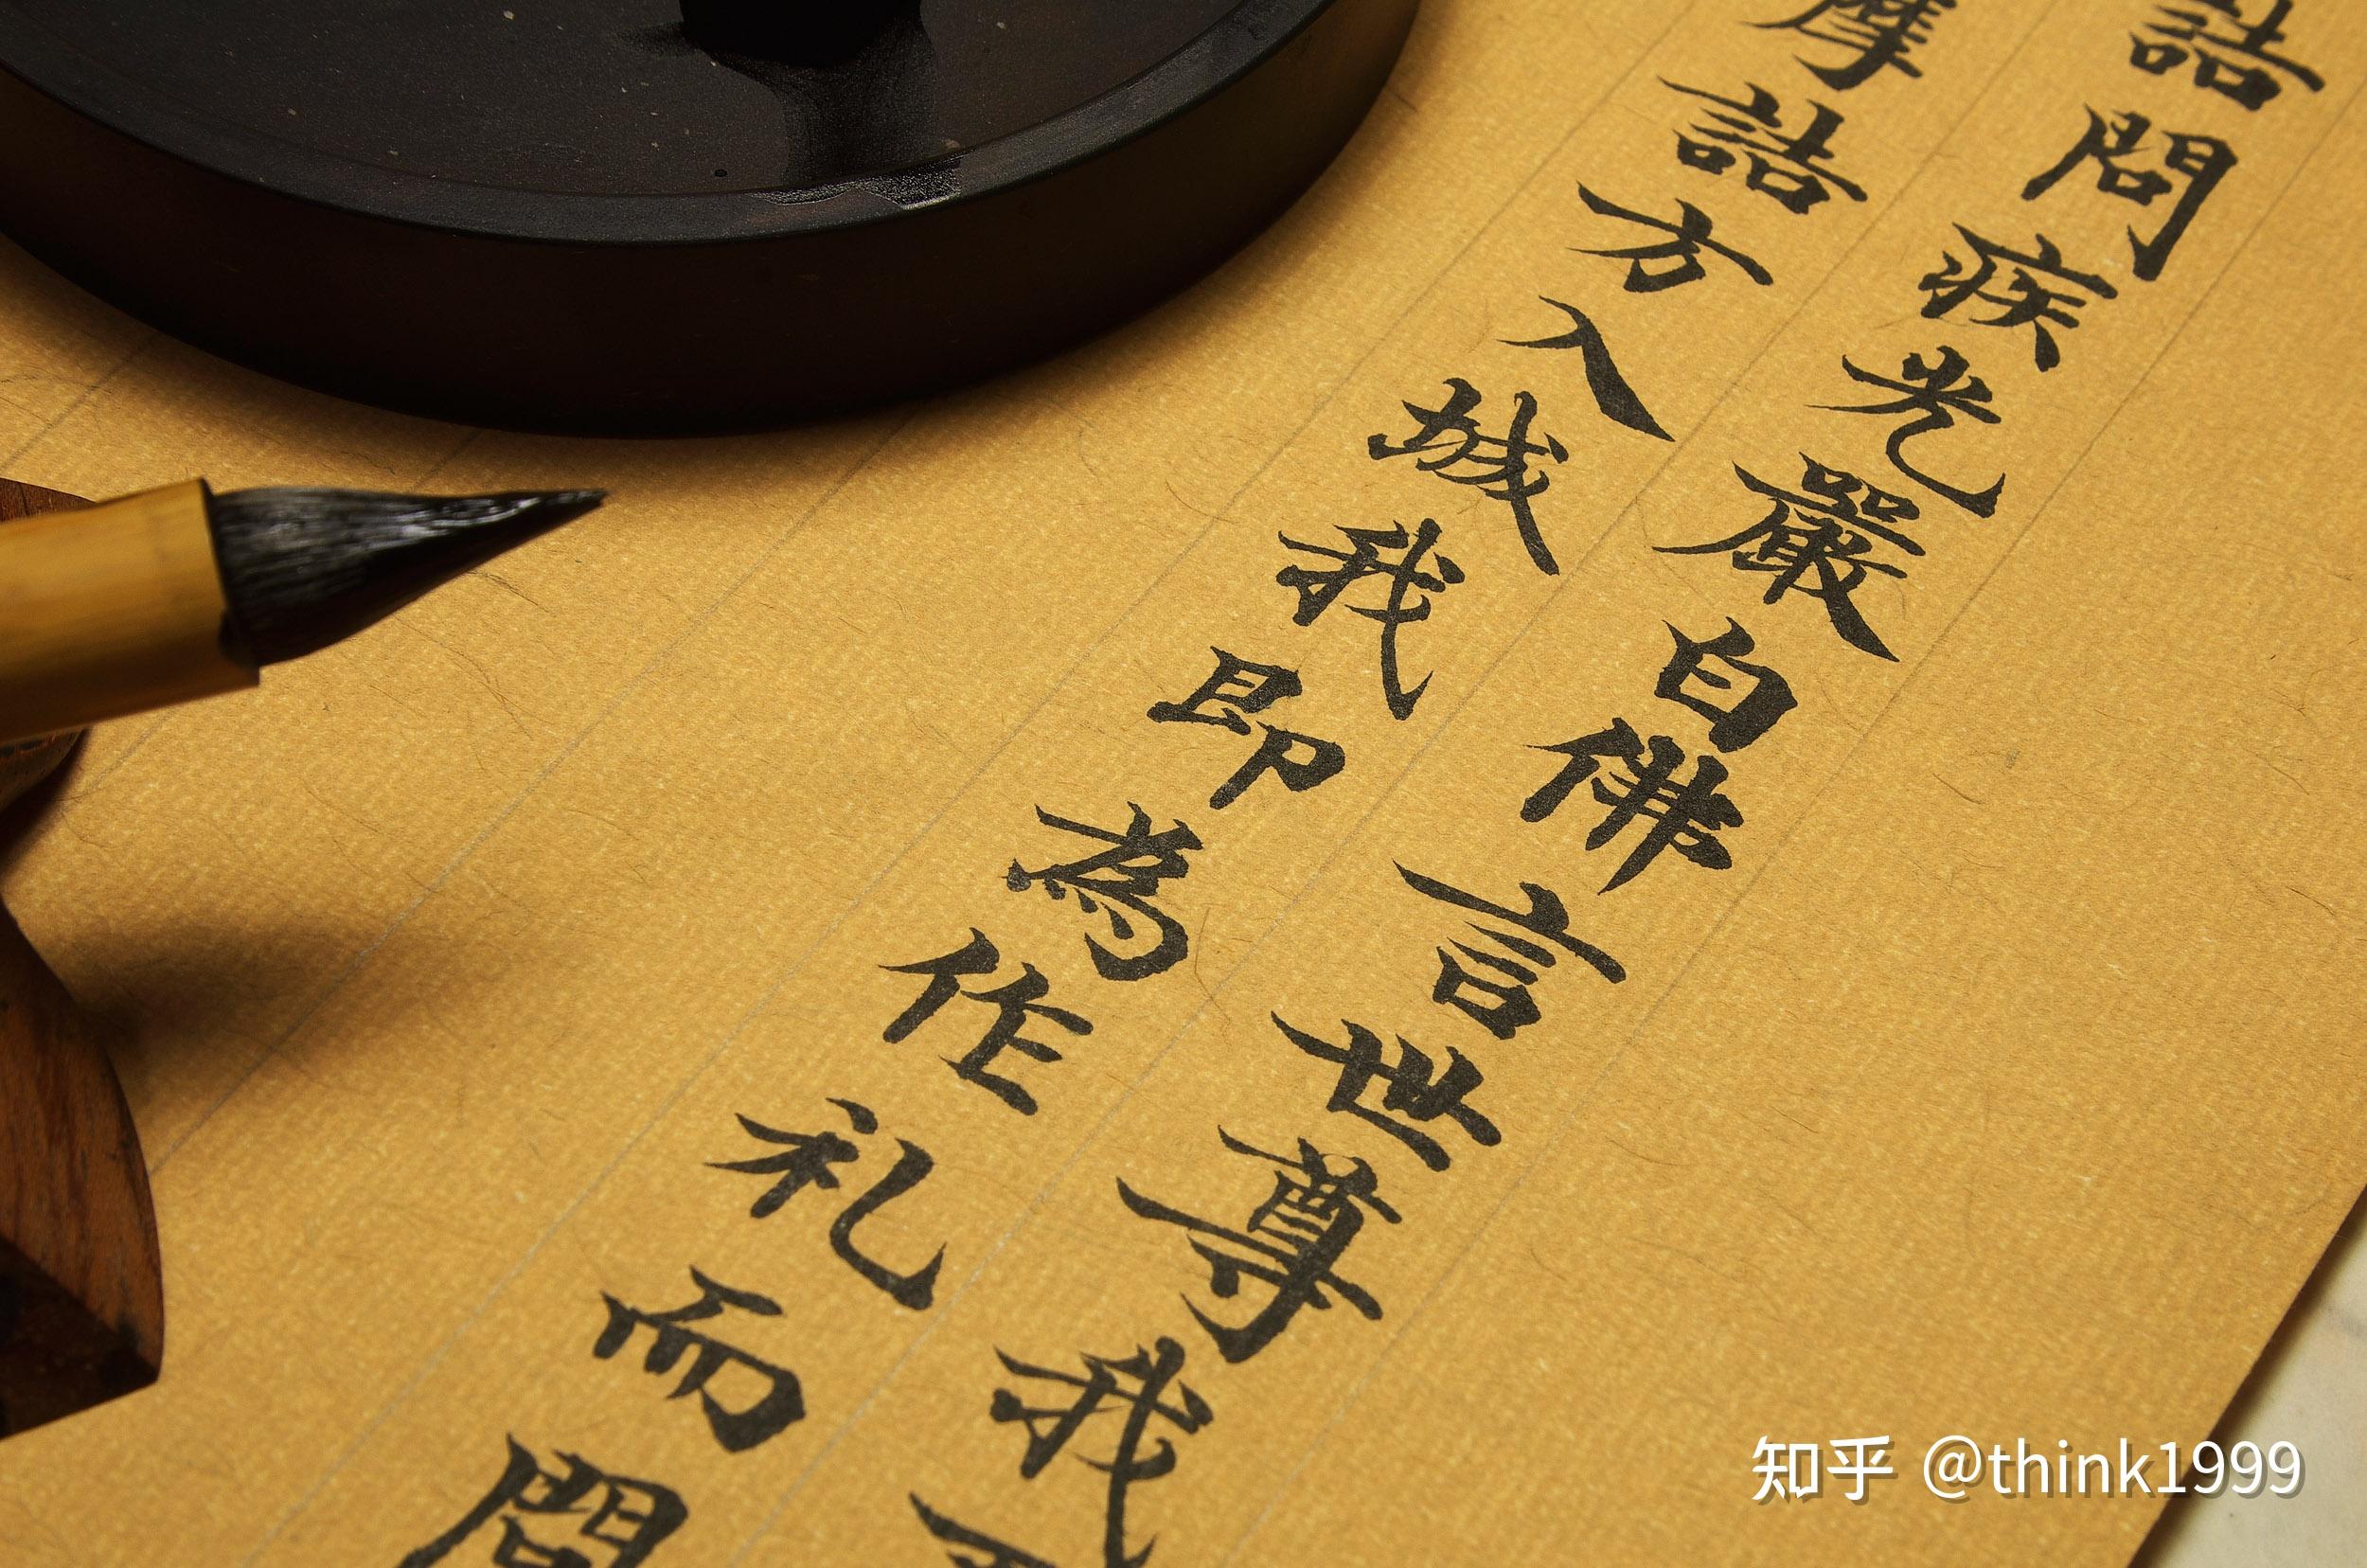 詰問疾光嚴白佛言世尊我
摩詰方入城我即為作礼而問
知乎 @think1999